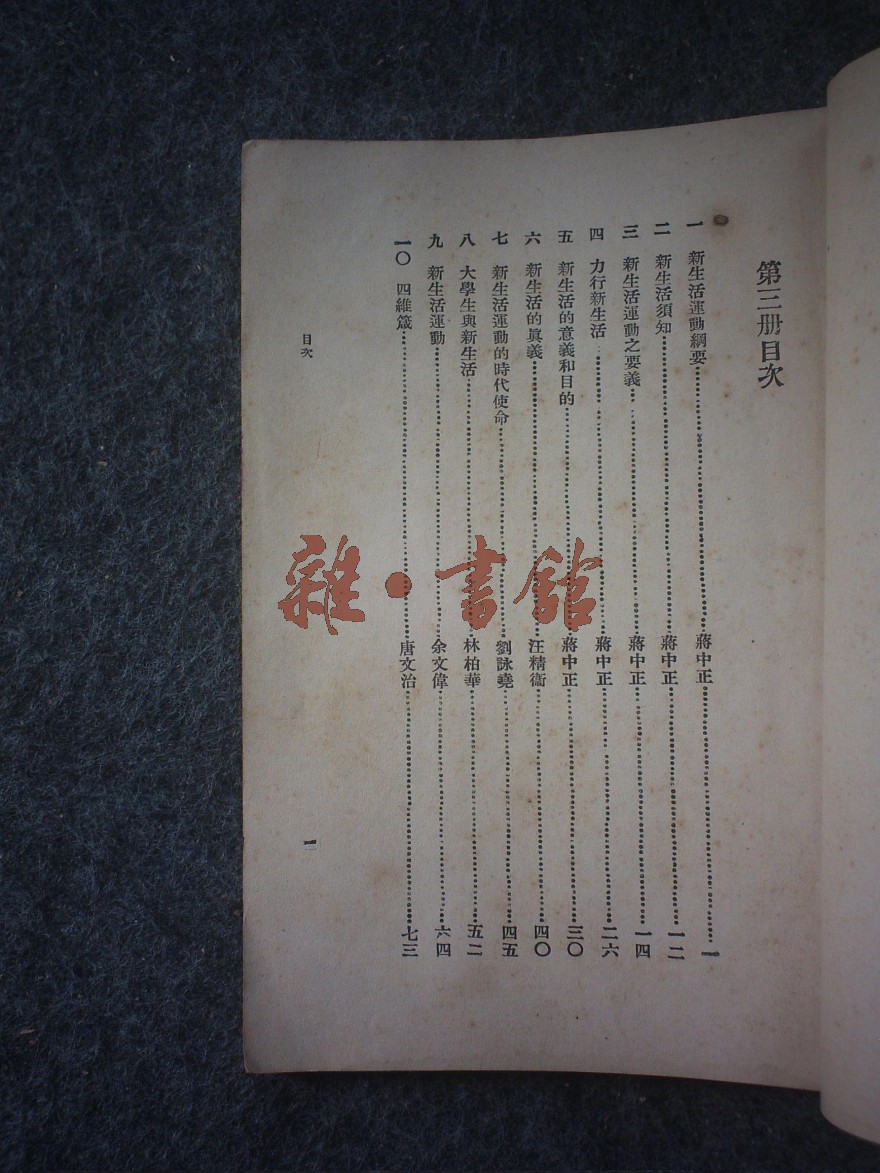 第三册目次
一 新生活運動綱要……蔣中正……一
二 新生活須知……蔣中正……一二
三 新生活運動之要義……蔣中正……一四
四 力行新生活……蔣中正……二六
五 新生活的意義和目的……蔣中正……三〇
六 新生活的眞義……汪精衞……四〇
七 新生活運動的時代使命……劉詠堯……四五
八 大學生與新生活……林柏華……五二
九 新生活運動……余文偉……六四
一〇 四維箴……唐文治……七三
目次
一
雜·書館